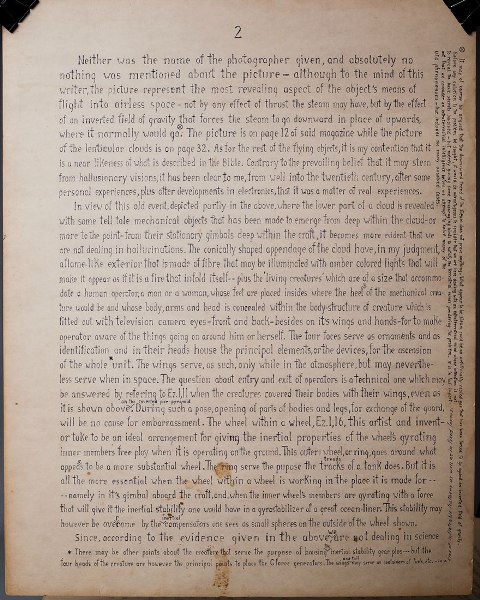 2
Neither was the name of the photographer given, and absolutely no
nothing was mentioned about the picture – although to the mind of this
writer, the picture represent the most revealing aspect of the object's means of
flight into airless space – not by any effect of thrust the steam may have, but by the effect
of an inverted field of gravity that forces the steam to go downward in place of upwards,
where it normally would go. The picture is on page 12 of said magazine while the picture
of the lenticular clouds is on page 32. As for the rest of the flying objects, it is my contention that it
is a near likeness of what is described in the Bible. Contrary to the prevailing belief that it may stem
from hallusionary visions, it has been clear to me, from well into the twentieth century, after some
personal experiences, plus after developments in electronics, that it was a matter of real experiences.
In view of this old event, depicted partly in the above, where the lower part of a cloud is revealed
with some tell tale mechanical objects that has been made to emerge from deep within the cloud – or
more to the point – from their stationary gimbols deep within the craft, it becomes more evident that we
are not dealing in hallucinations. The conically shaped appendage of the cloud have, in my judgment,
a flame-like exterior that is made of fibre that may be illuminated with amber colored lights that will
make it appear as if it is a fire that infold itself -- plus the 'living creatures' which are of a size that accommo-
date a human operator, a man or a woman, whose feet are placed insides where the heel of the mechanical crea-
ture would be and whose body, arms and head is concealed within the body-structure of creature which is
fitted out with television camera eyes – front and back – besides on its wings and hands – for to make
operator aware of the things going on around him or herself. The four faces serve as ornaments and as
identification and in their heads house the principal elements, or the devices, for the ascension
of the whole unit. The wings serve, as such, only while in the atmosphere, but may neverthe-
less serve when in space. The question about entry and exit of operators is a technical one which may
be answered by referring to Ez. 1, 11 when the creatures covered their bodies with their wings, even as
it is shown above. During such a pose, opening of parts of bodies and legs, for exchange of the guard,
will be no cause for embarrassment. The wheel within a wheel, Ez. 1, 16, this artist and invent-
or take to be an ideal arrangement for giving the inertial properties of the wheels gyrating
inner members free play when it is operating on the ground. This outer wheel, or ring, goes around what
appears to be a more substantial wheel. The ring serve the pupose the tracks of a tank does. But it is
all the more essential when the wheel within a wheel is working in the place it is made for --
-- namely in it's gimbal aboard the craft, and, when the inner wheel's members are gyrating with a force
that will give it the inertial stability one would have in a gyrostabilizer of a great ocean-liner. This stability may
however be overcome by the compensators one sees as small spheres on the outside of the wheel shown.
Since, according to the evidence given in the above, we are not dealing in science
* There may be other points about the creature that serve the purpose of housing inertial stability gear also -- but the
four heads of the creature are however the principal points to place the G force generators.